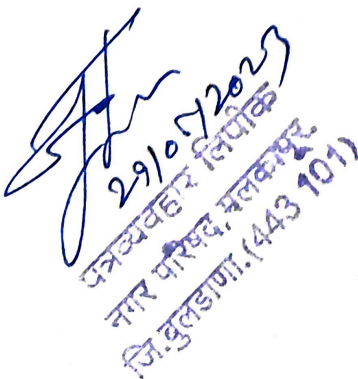 29/07/2023
पत्रव्यवहार लिपीक
नगर परिषद, मलकापूर,
जि.बुलडाणा.(443 101)